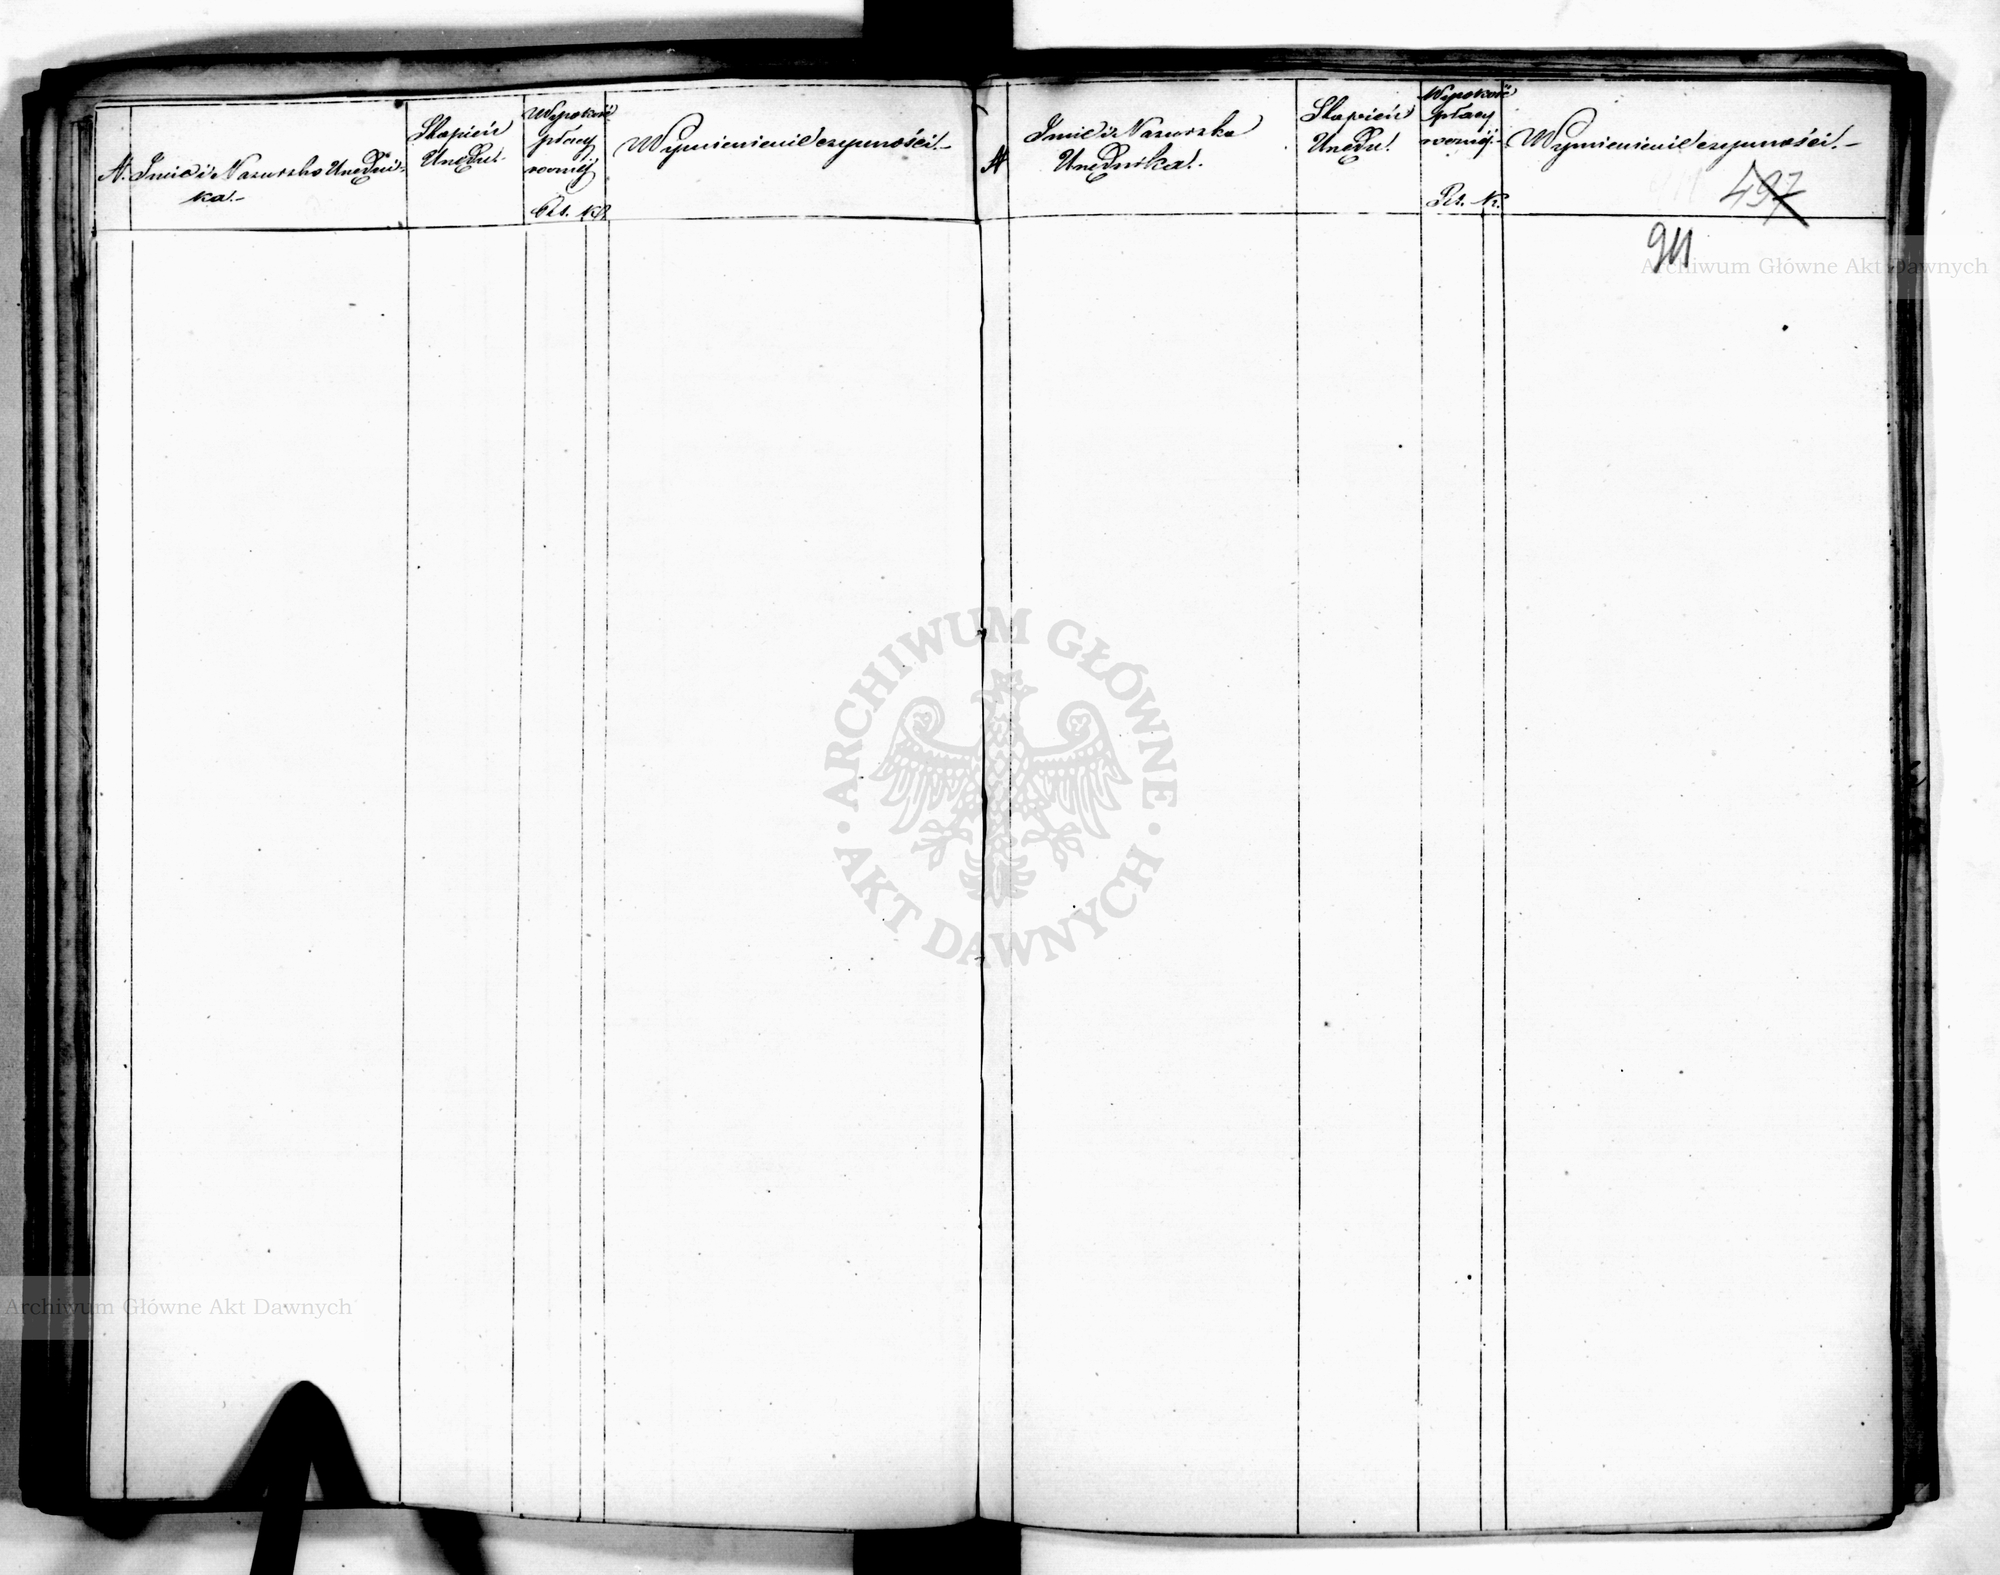 N. Imie i Nazwisko Urzędni-
ka.-
Stopień
Urzędu.-
Wysokość
płacy
rocznéj
Rs. kp.
Wymienienie czynności.-
N
Imie i Nazwisko
Urzędnika.
Stopień
Urzędu.
Wysokość
płacy
rocznéj.-
Rs. k.
Wymienienie czynności.-
497
911
Archiwum Główne Akt Dawnych
ARCHIWUM GŁÓWNE
AKT DAWNYCH
Archiwum Główne Akt Dawnych